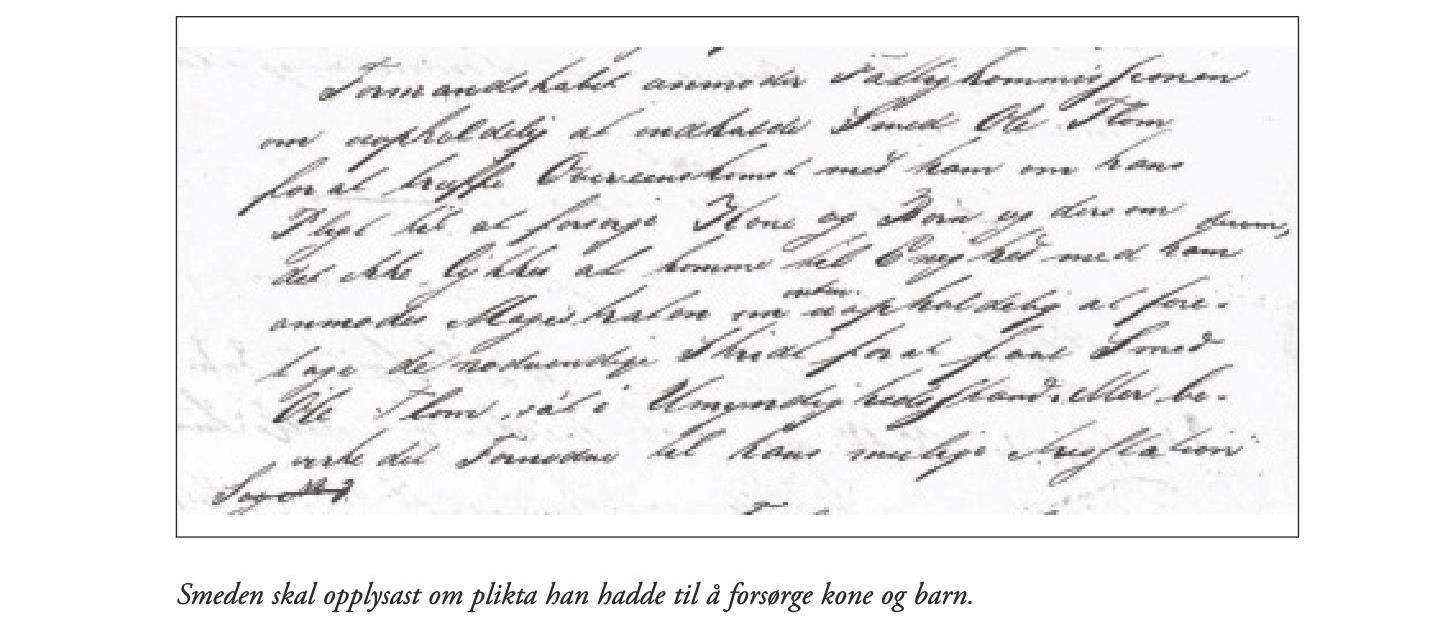 Formandskabet anmoder Fattigkommissionen
om uopholdelig at indkalde Smed Ole Flom
for at træffe Overeenskomst med ham om hans
Pligt til at forsørge Kone og Børn og dersom
det ikke lykkes at komme til Enighed med ham
anmodes Magistraten om uopholdelig at fore-
tage de nødvendige Skridt for at faae Smed
Ole Flom sat i Umyndighedsstand, eller be-
virke det Fornødne til hans mulige Arrestation
Smeden skal opplysast om plikta han hadde til å forsørge kone og barn.